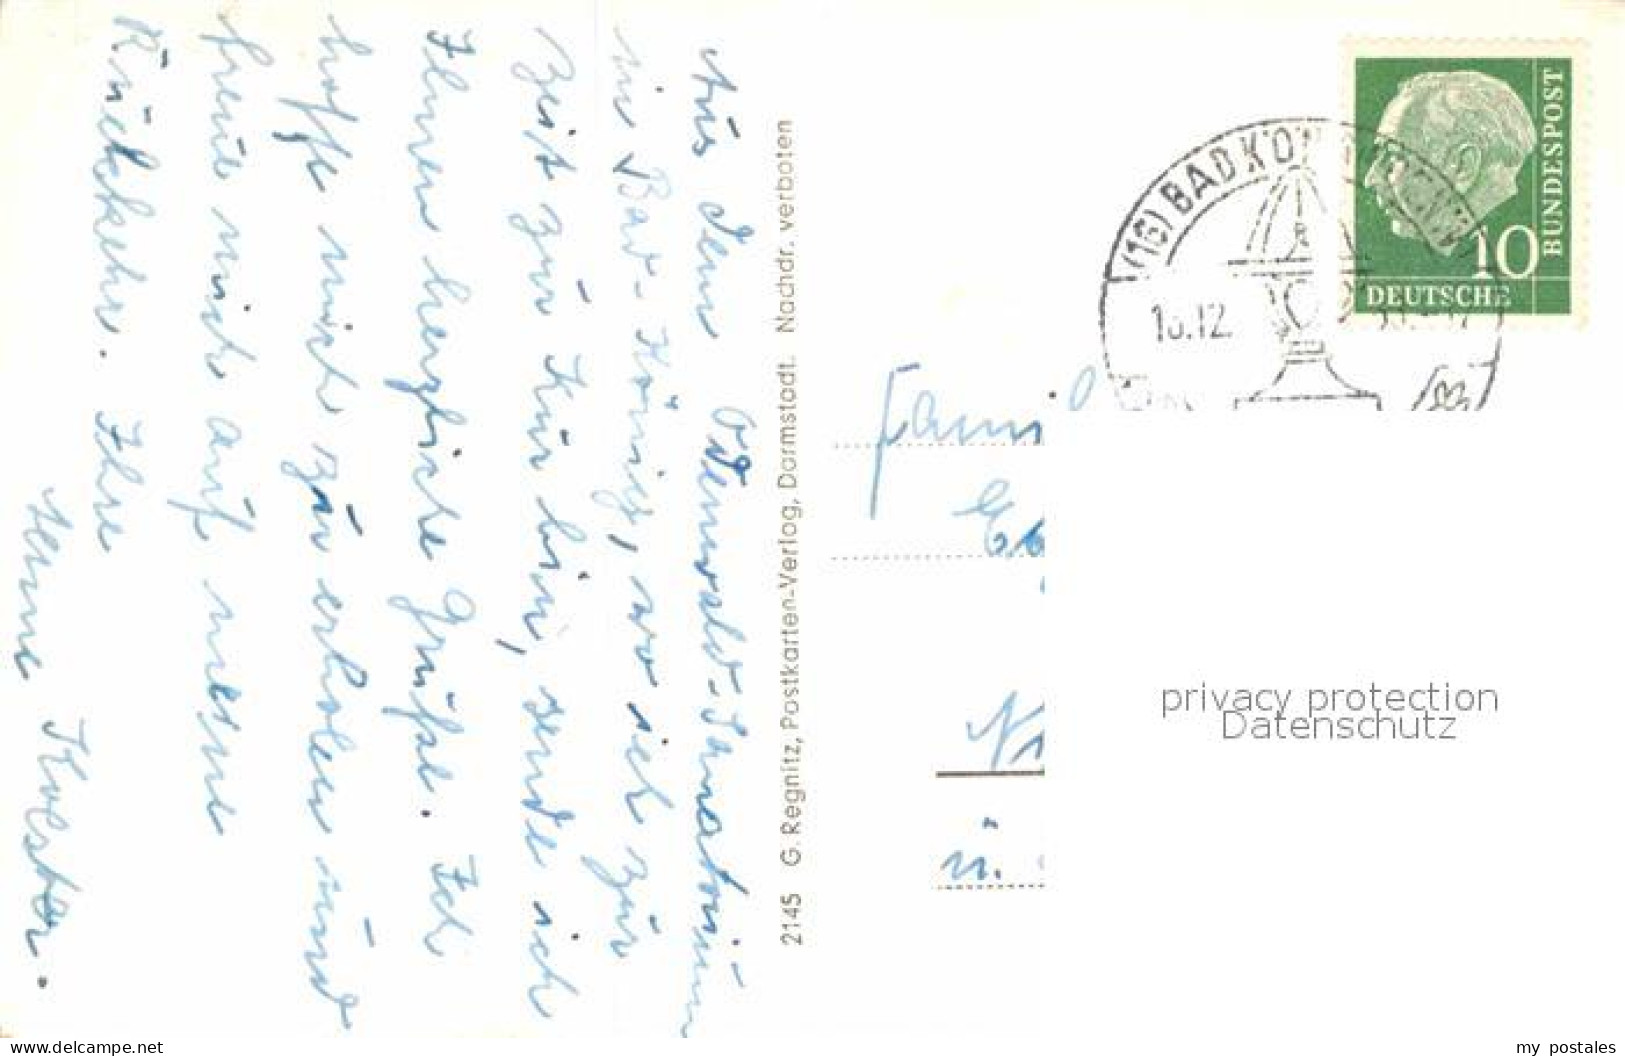 Aus dem Odenwald-Sanatorium
in Bad-König, wo ich zur
Zeit zur Kur bin, sende ich
Ihnen herzliche Grüße. Ich
hoffe mich zu erholen und
freue mich auf meine
Rückkehr. Ihre
Kolster.
2145 G. Regnitz, Postkarten-Verlag, Darmstadt. Nachdr. verboten
(16) BAD KÖNIG
12.
DEUTSCHE
BUNDESPOST
10
privacy protection
Datenschutz
www.delcampe.net
my_postales